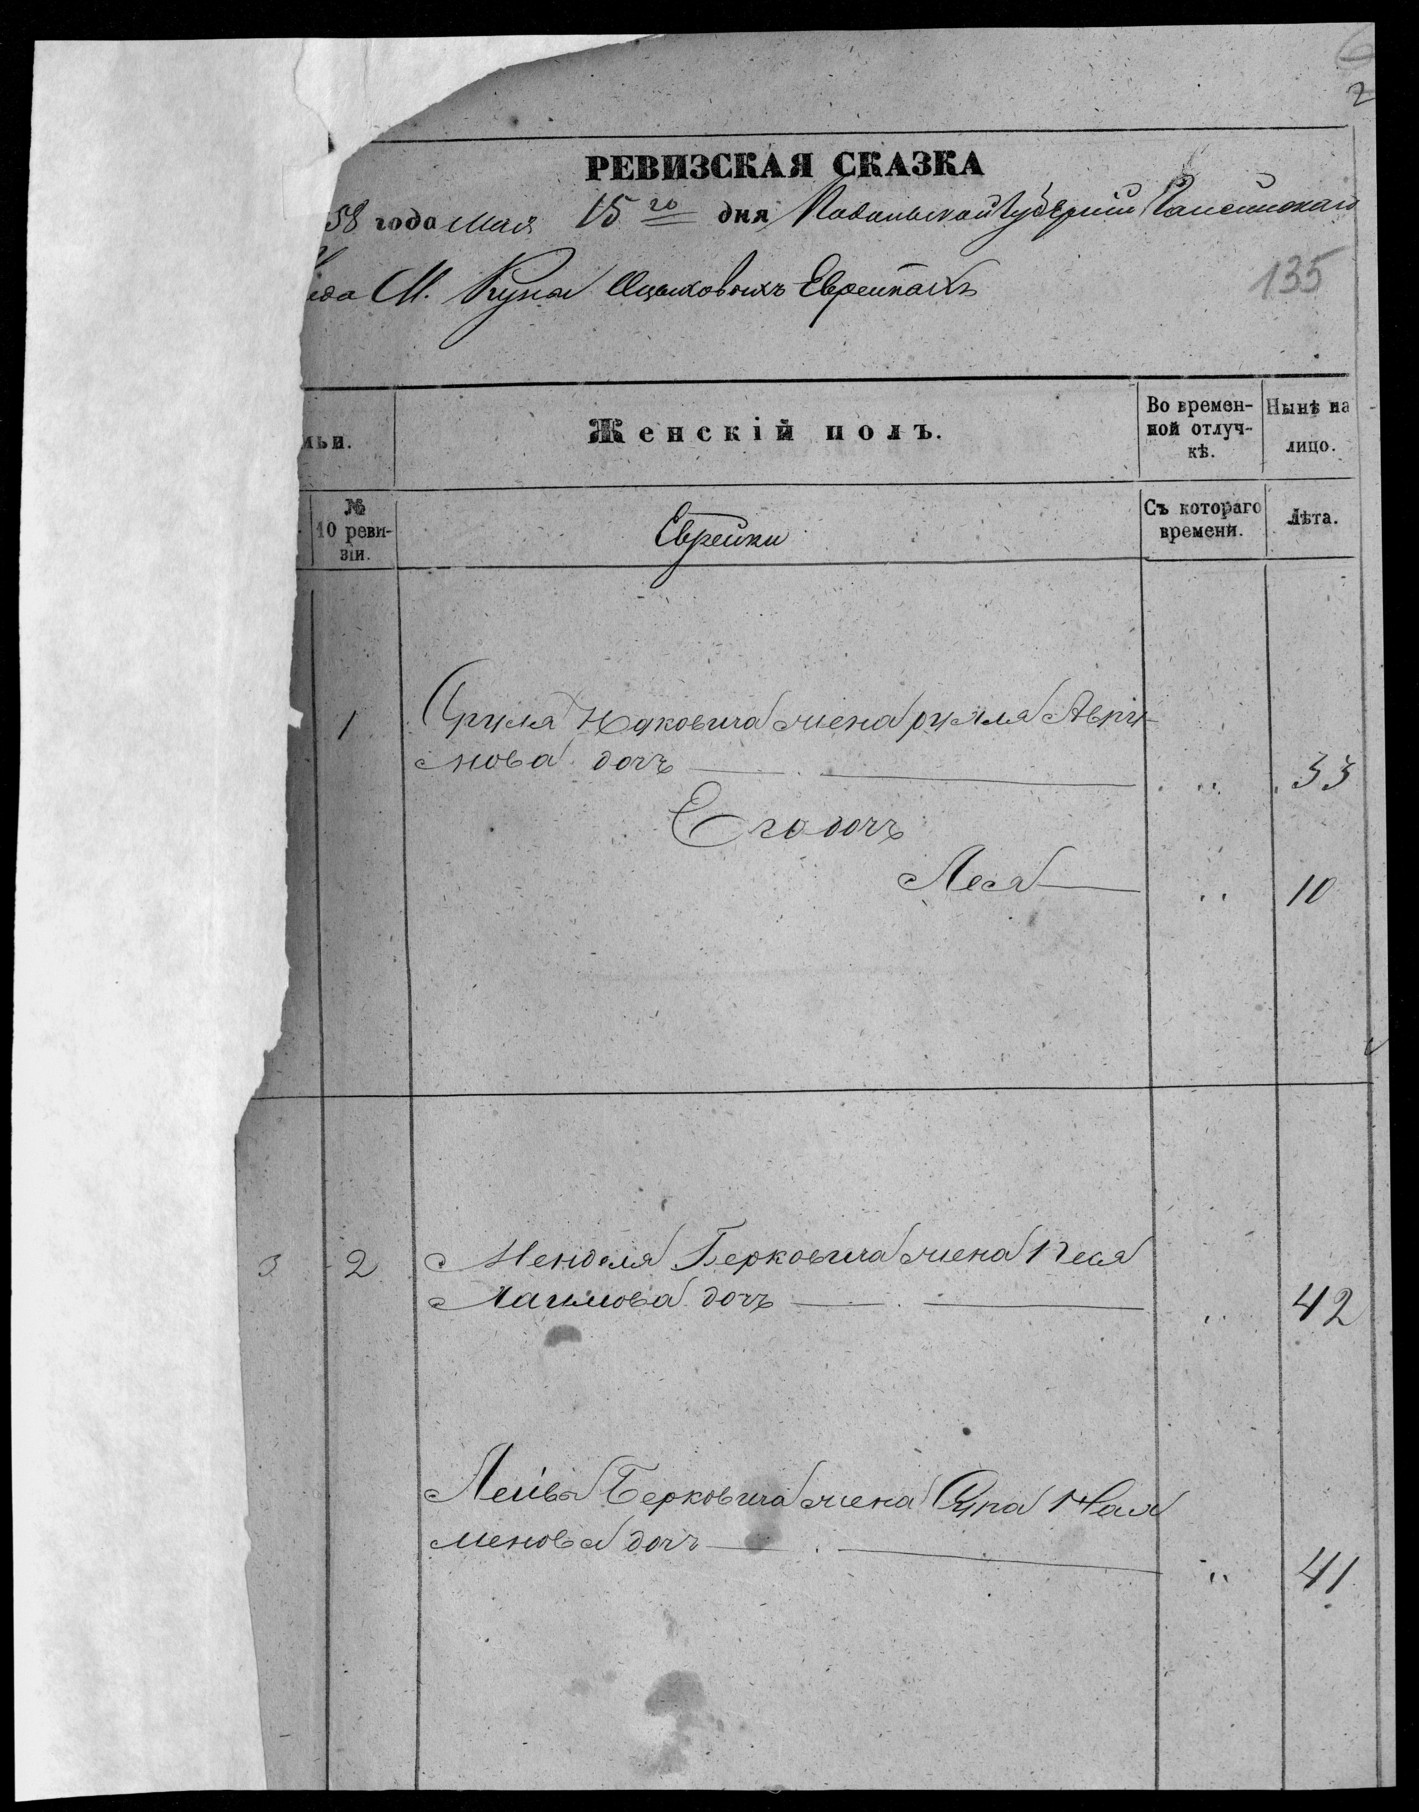 2
РЕВИЗСКАЯ СКАЗКА
58 года мая 15го дня Подольской Губернии Гайсинскаго
М. Куна Евреяхъ
135
ьи.
Женскій полъ.
Во времен-
ной отлуч-
кѣ.
Нынѣ на
лицо.
№
10 реви-
зіи.
Еврейки
Съ котораго
времени.
Лѣта.
1 Сруля Ицковича жена Рухля Авру-
мова дочь 33
Его дочь
Лея 10
3 2 Менделя Берковича жена Песя
Хаимова дочь 42
Лейбы Берковича жена Сура Кал
менова дочь 41